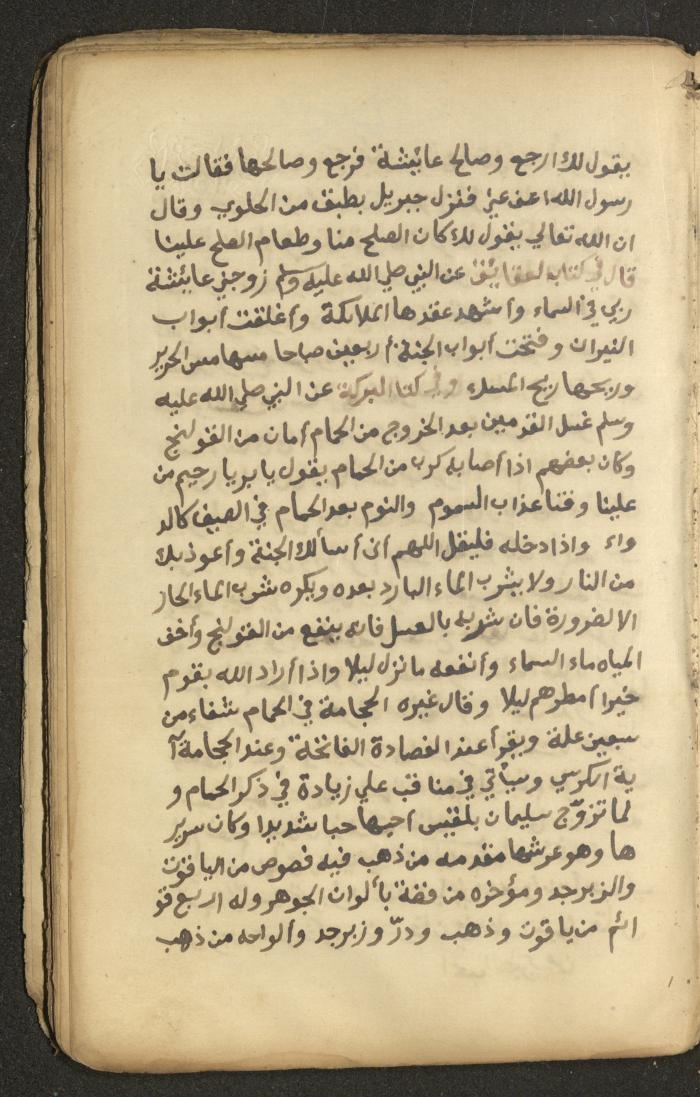 يقول لك ارجع وصالح عائشة فرجع وصالحها فقالت يا
رسول الله اعف عني فنزل جبريل بطبق من الحلوي وقال
ان الله تعالي يقول لك كان الصلح منا وطعام الصلح علينا
قال في كتاب العقايق عن النبي صلي الله عليه وسلم زوجني عائشة
ربي في السماء وأشهد عقدها الملائكة وأغلقت أبواب
النيران وفتحت أبواب الجنة أربعين صباحا مسها مس الحرير
وريحها ريح المسك وفي كتاب البركة عن النبي صلي الله عليه
وسلم غسل القدمين بعد الخروج من الحمام أمان من القولنج
وكان بعضهم اذا أصابه كرب من الحمام يقول يا بر يا رحيم من
علينا وقنا عذاب السموم والنوم بعد الحمام في الصيف كالد
واء واذا دخله فليقل اللهم اني أسألك الجنة وأعوذ بك
من النار ولا يشرب الماء البارد بعده ويكره شرب الماء الحار
الا لضرورة فان شربه بالعسل فانه ينفع من القولنج وأخف
المياه ماء السماء وأنفعه ما نزل ليلا واذا أراد الله بقوم
خيرا أمطرهم ليلا وقال غيره الحجامة في الحمام شفاء من
سبعين علة ويقرأ عند الفصادة الفاتحة وعند الحجامة آ
ية الكرسي وسيأتي في مناقب علي زيادة في ذكر الحمام و
لما تزوّج سليمان بلقيس أحبها حبا شديدا وكان سرير
ها وهو عرشها مقدمه من ذهب فيه فصوص من الياقوت
والزبرجد ومؤخره من فضة بألوان الجوهر وله اربع قو
ائم من ياقوت وذهب ودرّ وزبرجد وألواحه من ذهب